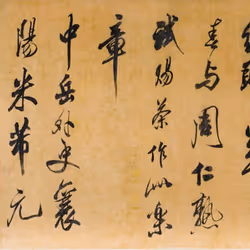 春与周仁熟
試賜茶作此樂
章
中岳外史襄
陽米芾元